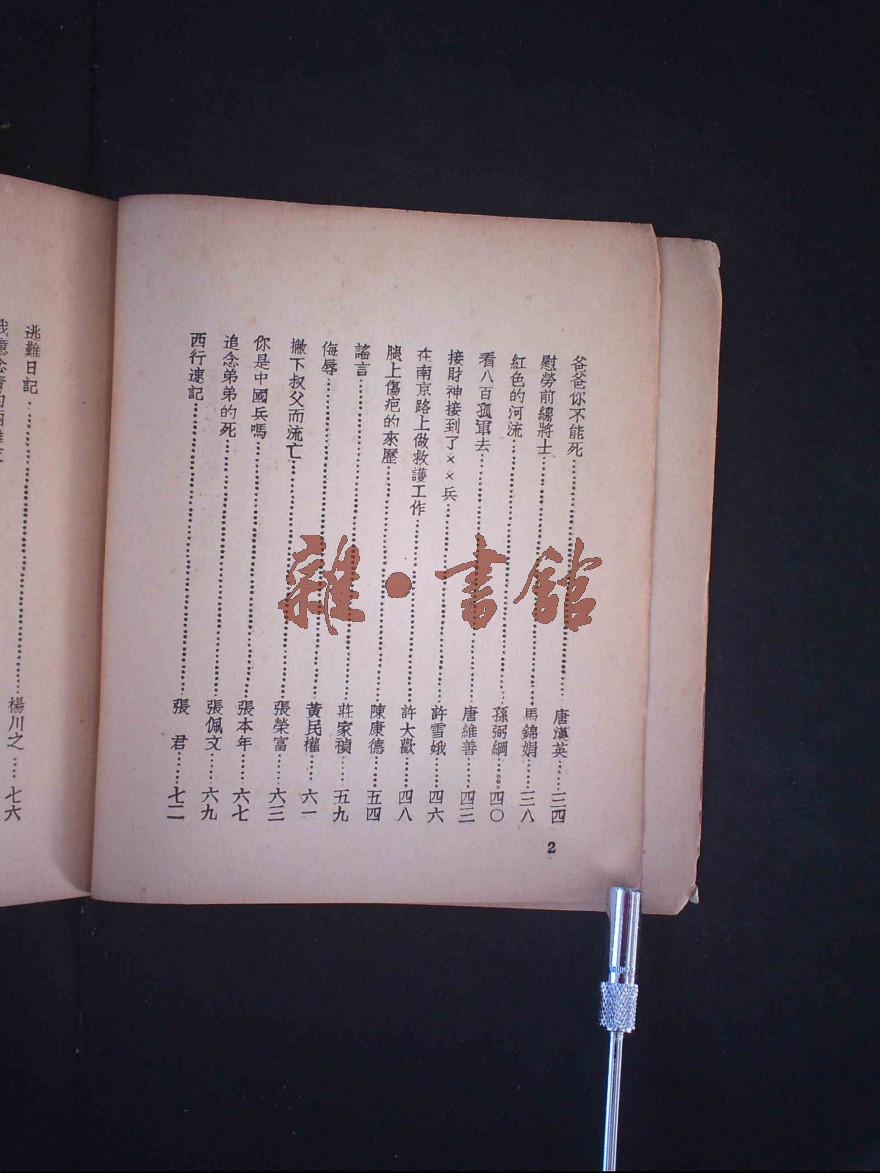 爸爸你不能死……唐漢英……三四
慰勞前線將士……馬錦娟……三八
紅色的河流……孫弼綱……四〇
看八百孤軍去……唐維善……四三
接財神接到了××兵……許雪娥……四六
在南京路上做救護工作……許大歡……四八
腿上傷疤的來歷……陳康德……五四
謠言……莊家禎……五九
侮辱……黃民權……六一
撇下叔父而流亡……張榮富……六三
你是中國兵嗎……張本年……六七
追念弟弟的死……張佩文……六九
西行速記……張 君……七二
2
逃難日記……楊川之……七六
雜·書館